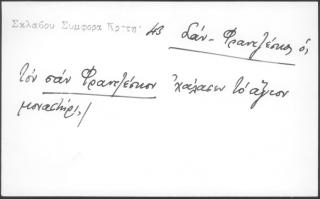 Σκλάβου Συμφορά Κρήτη 43 Σάν-Φραντζέσκος ὁ,
τὸν σάν Φραντζέσκον ἐχάλασεν τὸ ἅγιον
μοναστήρι,/